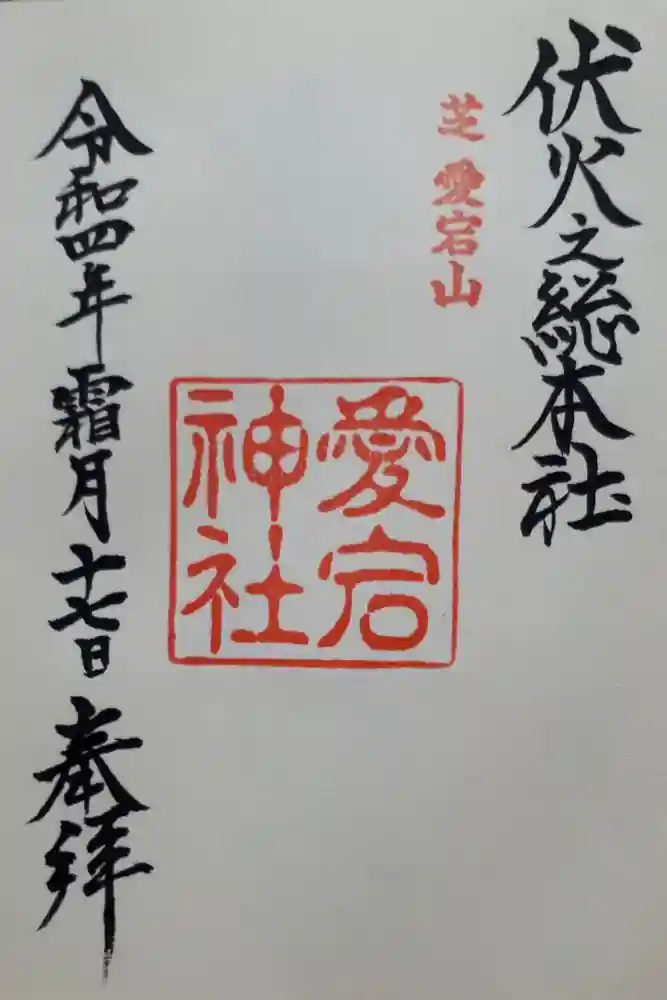 伏火之総本社
芝 愛宕山
愛宕
神社
令和四年霜月十七日奉拝